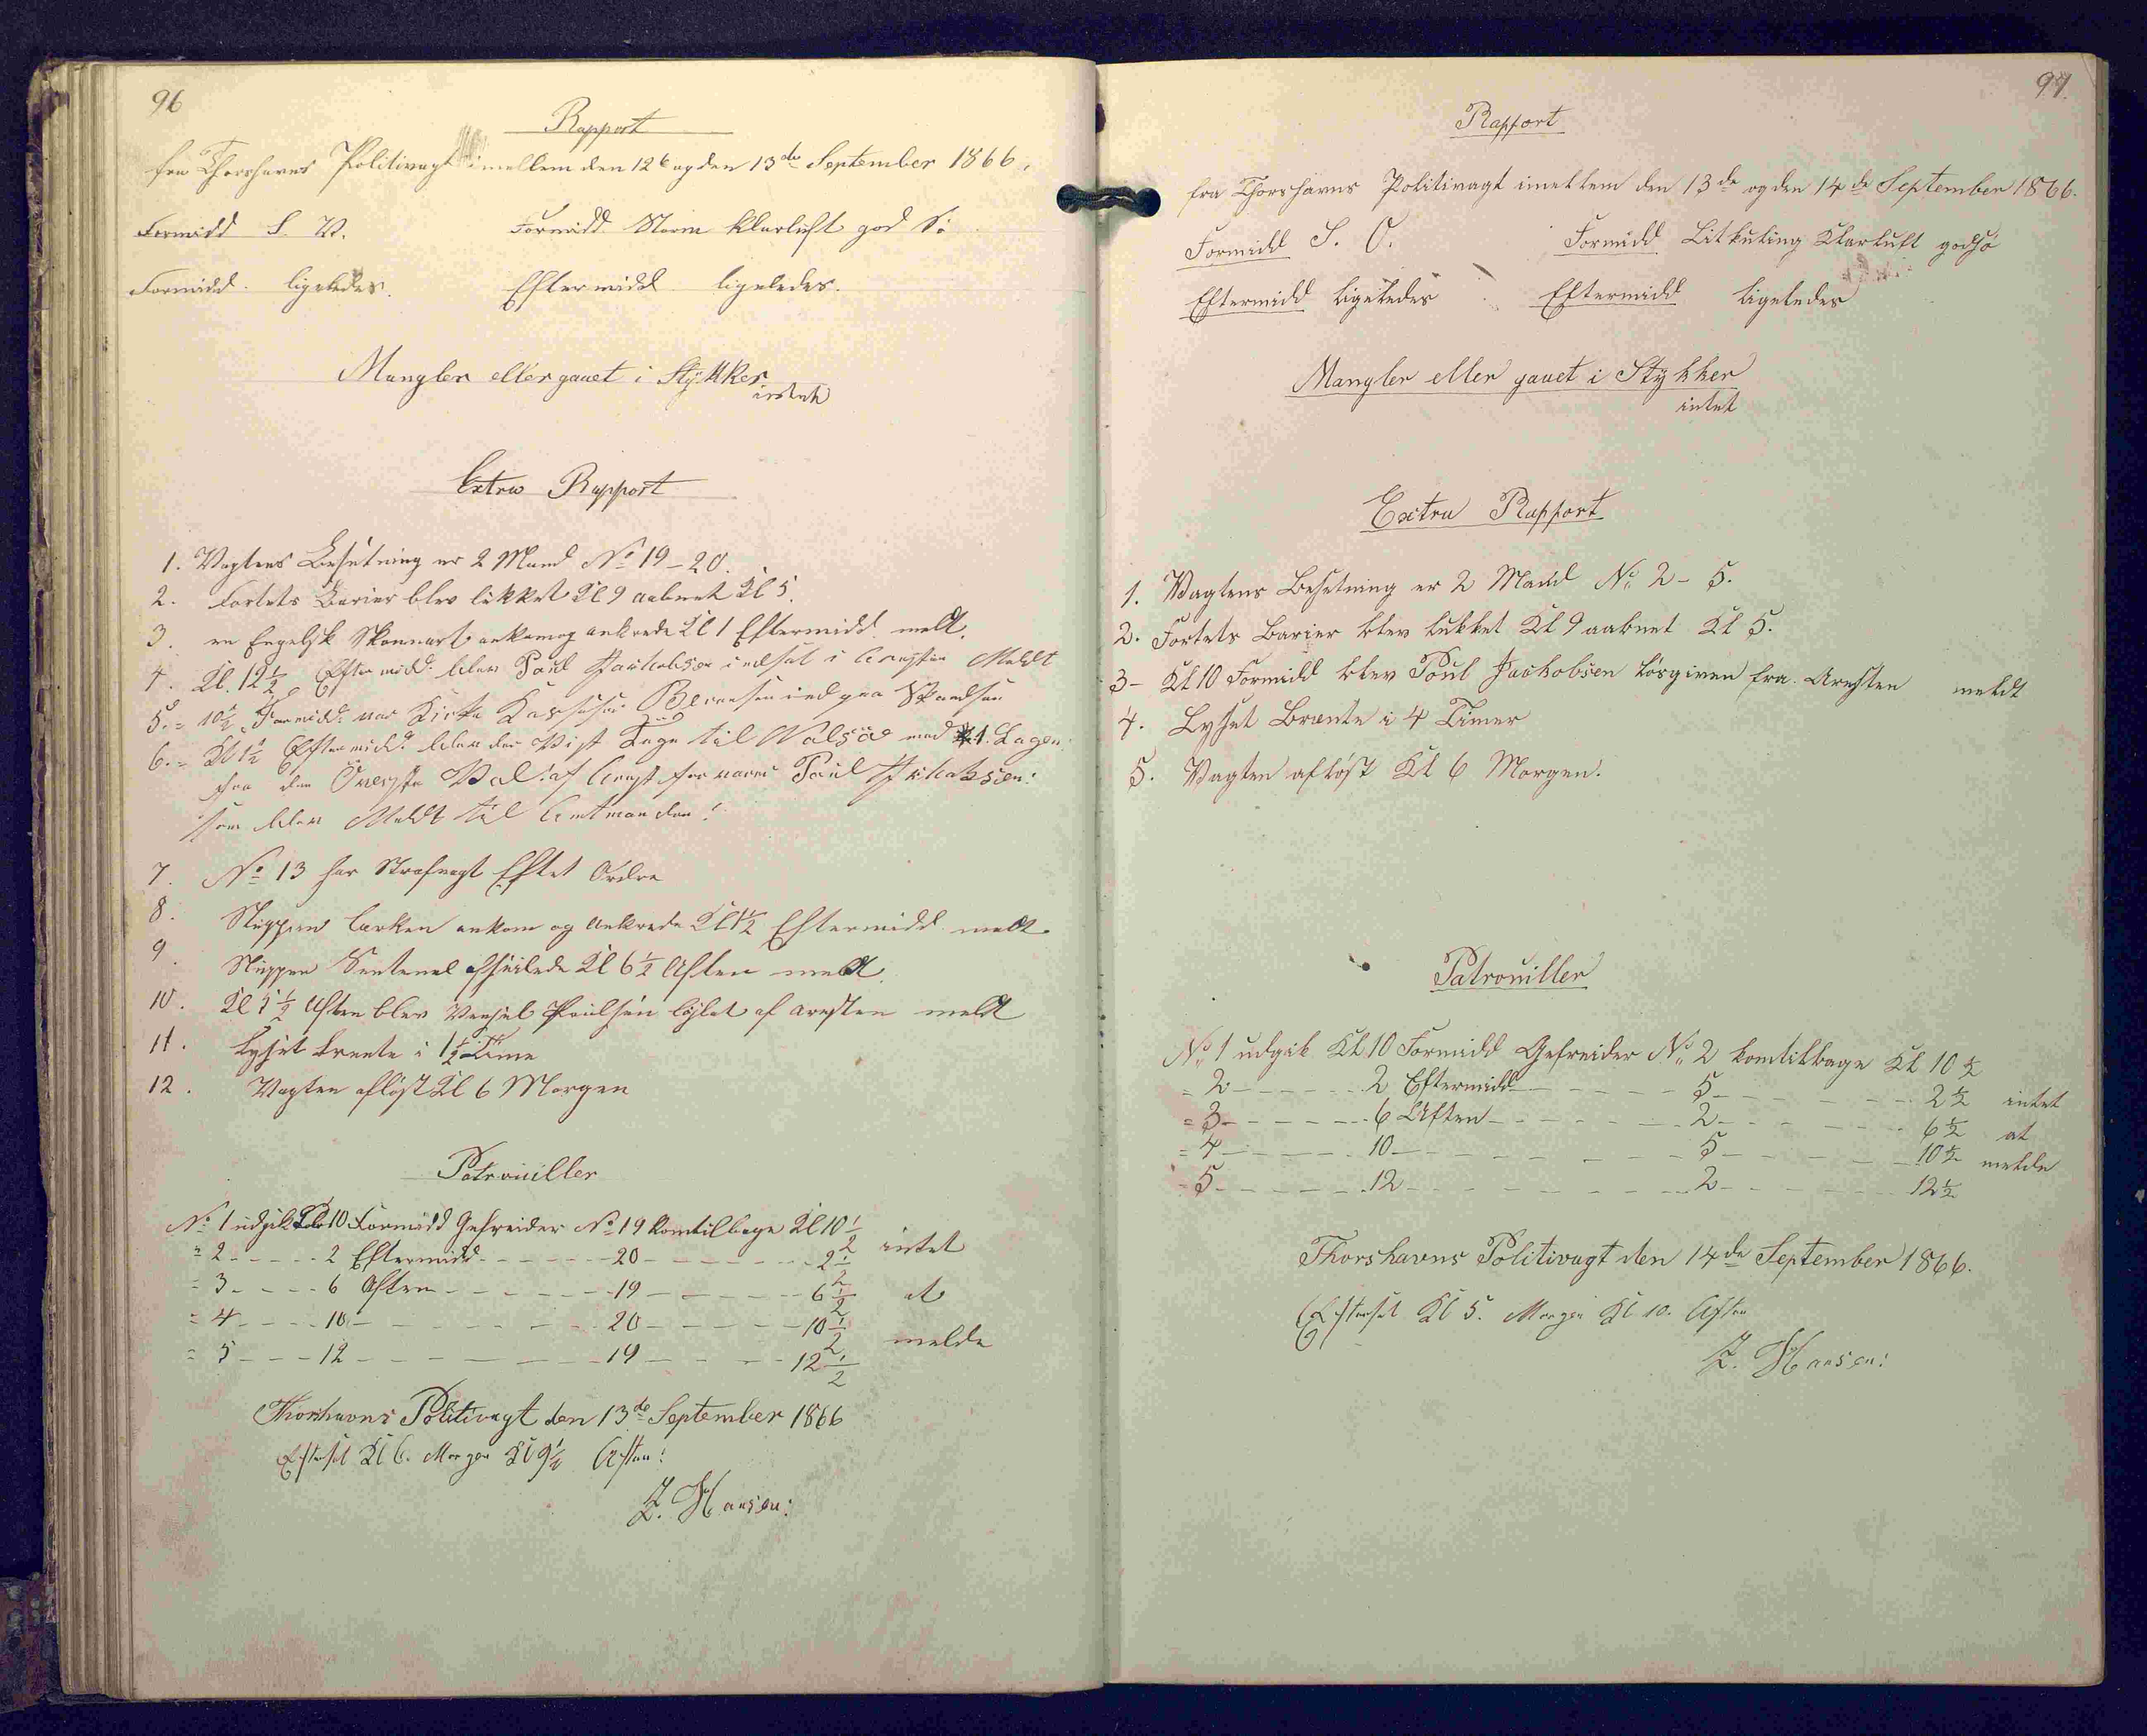 96
Rapport
fra Thorshavns Politivagt imellem den 12te og den 13de September 1866.
Formidd S. V. Formidd Storm Klarluft god Sö
Formidd. ligeledes. Eftermidd ligeledes.
Mangler eller gauet i Stykker.
intet
Extra Rapport
1. Vagtens Besetning er 2 Mand No 19-20.
2. Fortets Barier blev lukket Kl 9 aabnet Kl 5.
3. en Engelsk Skonnart ankom og ankrede Kl 1 Eftermidd. meldt.
4. Kl. 12 1/2 Eftermidd: blev Poul Jackobsen indsat i Aresten Meldt
5. = 10 1/2 Formidd: var
6. = Kl 1 1/2 Eftermidd: blev der til Nolsöe med 1. Lagen
fra den Överste af Poul Jackobsen:
som blev Meldt til Amtmanden!
7. No 13 har Strafvagt Eftet Ordre
8. Sluppen Lerken ankom og ankrede Kl 1 1/2 Eftermidd meldt.
9. Sluppen Sentenel afseilede Kl 6 1/2 Aften meldt.
10. Kl 5 1/2 Aften blev Poulsen löslat af aresten meldt
11. Lyset brente i 1 1/2 Time
12. Vagten aflöst Kl 6 Morgen
Patrouiller
No 1 udgik Kl 10 Formidd Gefreider No 19 komtilbage Kl 10 1/2
= 2 - - - - - 2 Eftermidd - - - - - - 20 - - - - - - - 2 1/2 intet
= 3 - - - - 6 Aften - - - - - - - 19 - - - - - - 6 1/2 at
= 4 - - - - 10 - - - - - - - 20 - - - - - 10 1/2
= 5 - - - 12 - - - - - - - 19 - - - - 12 1/2 melde
Thorshavns Politivagt den 13de September 1866
Efterset Kl 6. Morgen Kl 9 1/2 Aften:
Z. Hansen:
97.
Rapport
fra Thorshavns Politivagt imellem den 13de og den 14de September 1866.
Formidd S. O. Formidd Litkuling Klarluft godsö
Eftermidd ligeledes Eftermidd ligeledes
Mangler eller gauet i Stykker
intet
Extra Rapport
1. Vagtens Besetning er 2 Mand No 2 - 5.
2. Fortets Barier blev lukket Kl 9 aabnet Kl 5.
3 - Kl 10 Formidd blev Poul Jackobsen lösgiven fra Aresten meldt
4. Lyset Brænte i 4 Timer
5. Vagten aflöst Kl 6 Morgen.
Patrouiller
No 1 udgik Kl 10 Formidd Gefreider No 2 komtilbage Kl 10 1/2
= 2 - - - - - - 2 Eftermidd - - - - - 5 - - - - - - 2 1/2 intet
= 3 - - - - - - 6 Aften - - - - - - 2 - - - - - - 6 1/2 at
= 4 - - - - - - 10 - - - - - - - 5 - - - - - - 10 1/2 melde
- 5 - - - - - - 12 - - - - - - - 2 - - - - - - 12 1/2
Thorshavns Politivagt den 14de September 1866.
Efterset Kl 5. Morgen Kl 10. Aften
Z. Hansen: